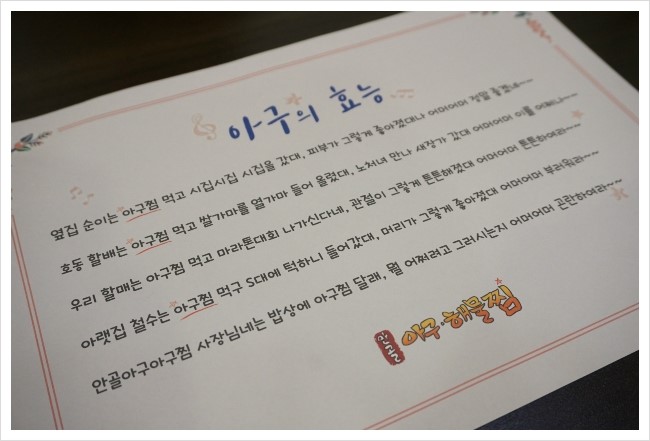 아구의 효능
옆집 순이는 아구찜 먹고 시집시집 시집을 갔대, 피부가 그렇게 좋아졌대나 어머어머 정말 좋겠네~~
호동 할배는 아구찜 먹고 쌀가마를 열가마 들어 올렸대, 노처녀 만나 새장가 갔대 어머어머 이를 어쩌나~~
우리 할매는 아구찜 먹고 마라톤대회 나가신다네, 관절이 그렇게 튼튼해졌대 어머어머 튼튼하여라~~
아랫집 철수는 아구찜 먹구 S대에 턱하니 들어갔대, 머리가 그렇게 좋아졌대 어머어머 부러워라~~
안골아구아구찜 사장님네는 밥상에 아구찜 달래, 뭘 어쩌려고 그러시는지 어머어머 곤란하여라~~
안골 아구·해물찜